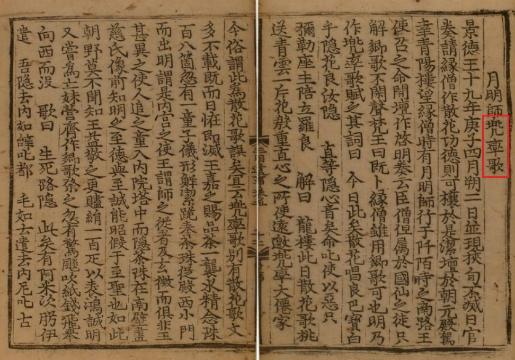 月明師兜率歌
景德王十九年庚子四月朔二日並現挾旬不滅日官
奏請緣僧作散花功德則可禳於是潔壇於朝元殿駕
幸青陽樓望緣僧時有月明師行于阡陌時之南路王
使召之命開壇作啓明奏云臣僧但属於國仙之徒只
解鄉歌不閑聲梵王曰既卜緣僧雖用鄉歌可也明乃
作兜率歌賦之其詞曰 今日此矣散花唱良巴寶白
乎隱花良汝隱 直等隱心音矣命叱使以惡只
彌勒座主陪立羅良 解曰 龍樓此日散花歌挑
送青雲一片花殷重直心之所使遠邀兜率大僊家
今俗謂此爲散花歌誤矣宜云兜率歌別有散花歌文
多不載既而日恠即滅王嘉之賜品茶一襲水精念珠
百八箇忽有一童子儀形鮮潔跪奉茶珠從殿西小門
而出明謂是内宮之使王謂師之從者及玄徵而俱非王
甚異之使人追之童入内院塔中而隱茶珠在南壁畫
慈氏像前知明之至德與至誠能昭假于至聖也如此
朝野莫不聞知王益敬之更贐絹一百疋以表鴻誠明
又嘗爲亡妹營齋作鄉歌祭之忽有驚颷吹紙錢飛擧
向西而沒 歌曰 生死路隱 此矣有阿米次肹伊
遣 吾隱去内如辝叱都 毛如云遣去内尼叱古